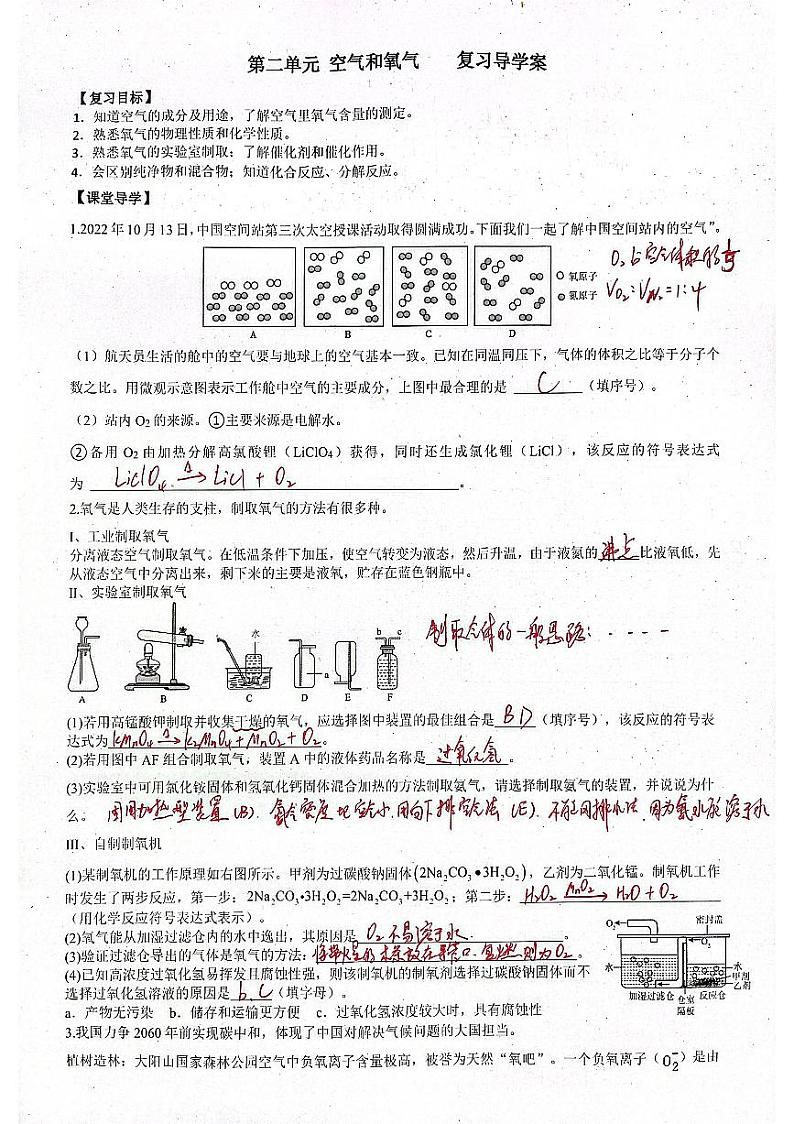 第二单元 空气和氧气 复习导学案
【复习目标】
1．知道空气的成分及用途，了解空气里氧气含量的测定。
2．熟悉氧气的物理性质和化学性质。
3．熟悉氧气的实验室制取；了解催化剂和催化作用。
4．会区别纯净物和混合物；知道化合反应、分解反应。
【课堂导学】
1.2022年10月13日，中国空间站第三次太空授课活动取得圆满成功。下面我们一起了解中国空间站内的空气”。
氧原子
氮原子
A B C D
O₂占空气体积的
VO₂:VN₂=1:4
（1）航天员生活的舱中的空气要与地球上的空气基本一致。已知在同温同压下，气体的体积之比等于分子个
数之比。用微观示意图表示工作舱中空气的主要成分，上图中最合理的是 C （填序号）。
（2）站内 O₂ 的来源。①主要来源是电解水。
②备用 O₂ 由加热分解高氯酸锂（LiClO₄）获得，同时还生成氯化锂（LiCl），该反应的符号表达式
为 LiClO₄ △→ LiCl + O₂ 。
2.氧气是人类生存的支柱，制取氧气的方法有很多种。
I、工业制取氧气
分离液态空气制取氧气。在低温条件下加压，使空气转变为液态，然后升温，由于液氮的 沸点 比液氧低，先
从液态空气中分离出来，剩下来的主要是液氧，贮存在蓝色钢瓶中。
II、实验室制取氧气
水
a
b c
A B C D E F
制取气体的一般思路：· · · ·
(1)若用高锰酸钾制取并收集干燥的氧气，应选择图中装置的最佳组合是 BD （填序号），该反应的符号表
达式为 KMnO₄ △→ K₂MnO₄ + MnO₂ + O₂ 。
(2)若用图中 AF 组合制取氧气，装置 A 中的液体药品名称是 过氧化氢 。
(3)实验室中可用氯化铵固体和氢氧化钙固体混合加热的方法制取氨气，请选择制取氨气的装置，并说说为什
么。 用加热型装置（B）．氨气密度比空气小．用向下排空气法（E）．不能用排水法，因为氨气极溶于水
III、自制制氧机
(1)某制氧机的工作原理如右图所示。甲剂为过碳酸钠固体(2Na₂CO₃•3H₂O₂)，乙剂为二氧化锰。制氧机工作
时发生了两步反应，第一步：2Na₂CO₃•3H₂O₂=2Na₂CO₃+3H₂O₂；第二步： H₂O₂ MnO₂→ H₂O + O₂
（用化学反应符号表达式表示）。
(2)氧气能从加湿过滤仓内的水中逸出，其原因是 O₂不易溶于水 。
(3)验证过滤仓导出的气体是氧气的方法： 将带火星的木条放在导管口．复燃则为O₂ 。
(4)已知高浓度过氧化氢易挥发且腐蚀性强，则该制氧机的制氧剂选择过碳酸钠固体而不
选择过氧化氢溶液的原因是 b、C （填字母）。
a．产物无污染 b．储存和运输更方便 c．过氧化氢浓度较大时，具有腐蚀性
O₂ 密封盖
O₂
水 水
甲剂
乙剂
加湿过滤仓 仓室隔板 反应仓
3.我国力争 2060 年前实现碳中和，体现了中国对解决气候问题的大国担当。
植树造林：大阳山国家森林公园空气中负氧离子含量极高，被誉为天然“氧吧”。一个负氧离子（O₂⁻）是由